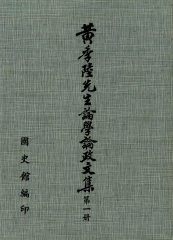 黃季陸先生論學論政文集
第一册
國史館編印